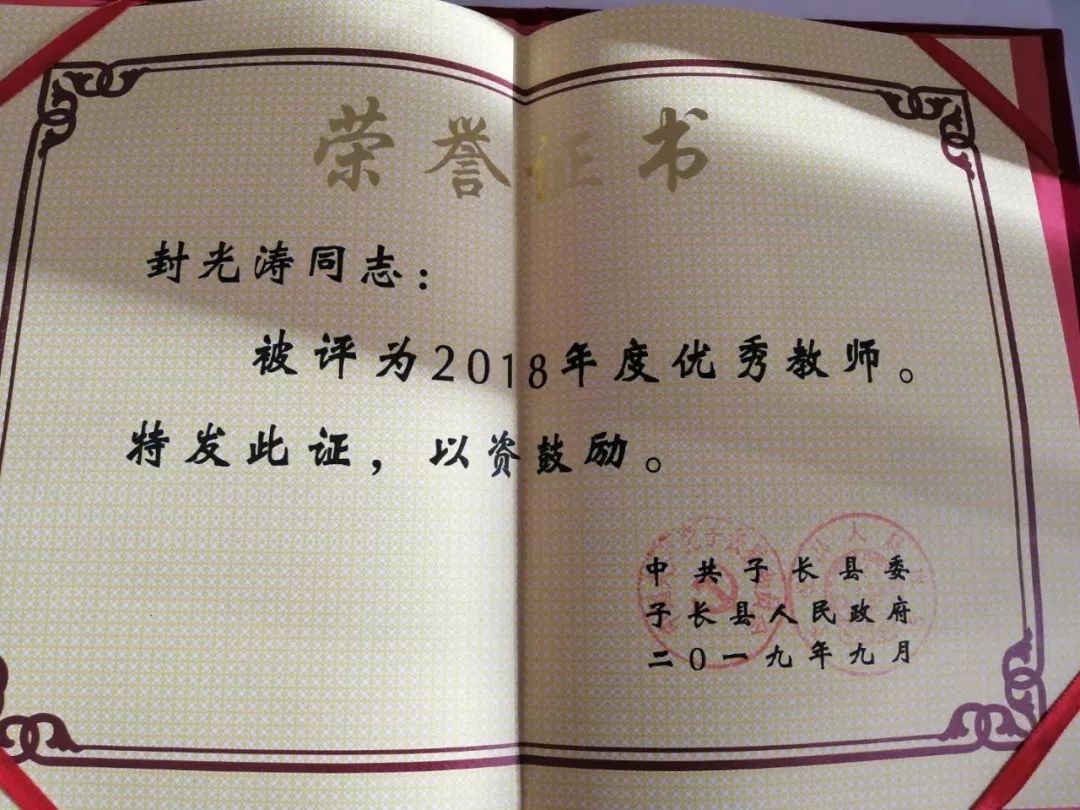 荣誉证书
封光涛同志：
被评为2018年度优秀教师。
特发此证，以资鼓励。
中共子长县委
子长县人民政府
二〇一九年九月